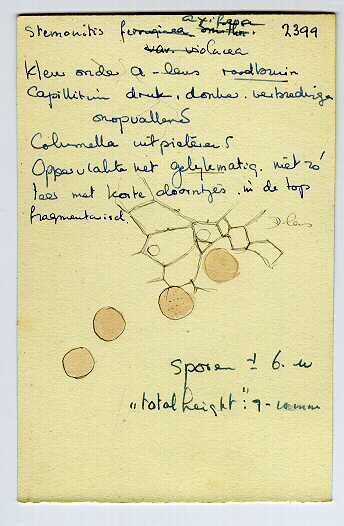 axifera
Stemonitis ferruginea 2399
var. violacea
Kleur onder a-lens roodbruin
Capillitium druk, donker. verbredingen
onopvallend
Columella uitpiekerend
Oppervlakte net gelijkmatig. niet zó
los met korte doorntjes. in de top
fragmentarisch.
D-lens
sporen ± 6. u
"total height": 9-10 mm